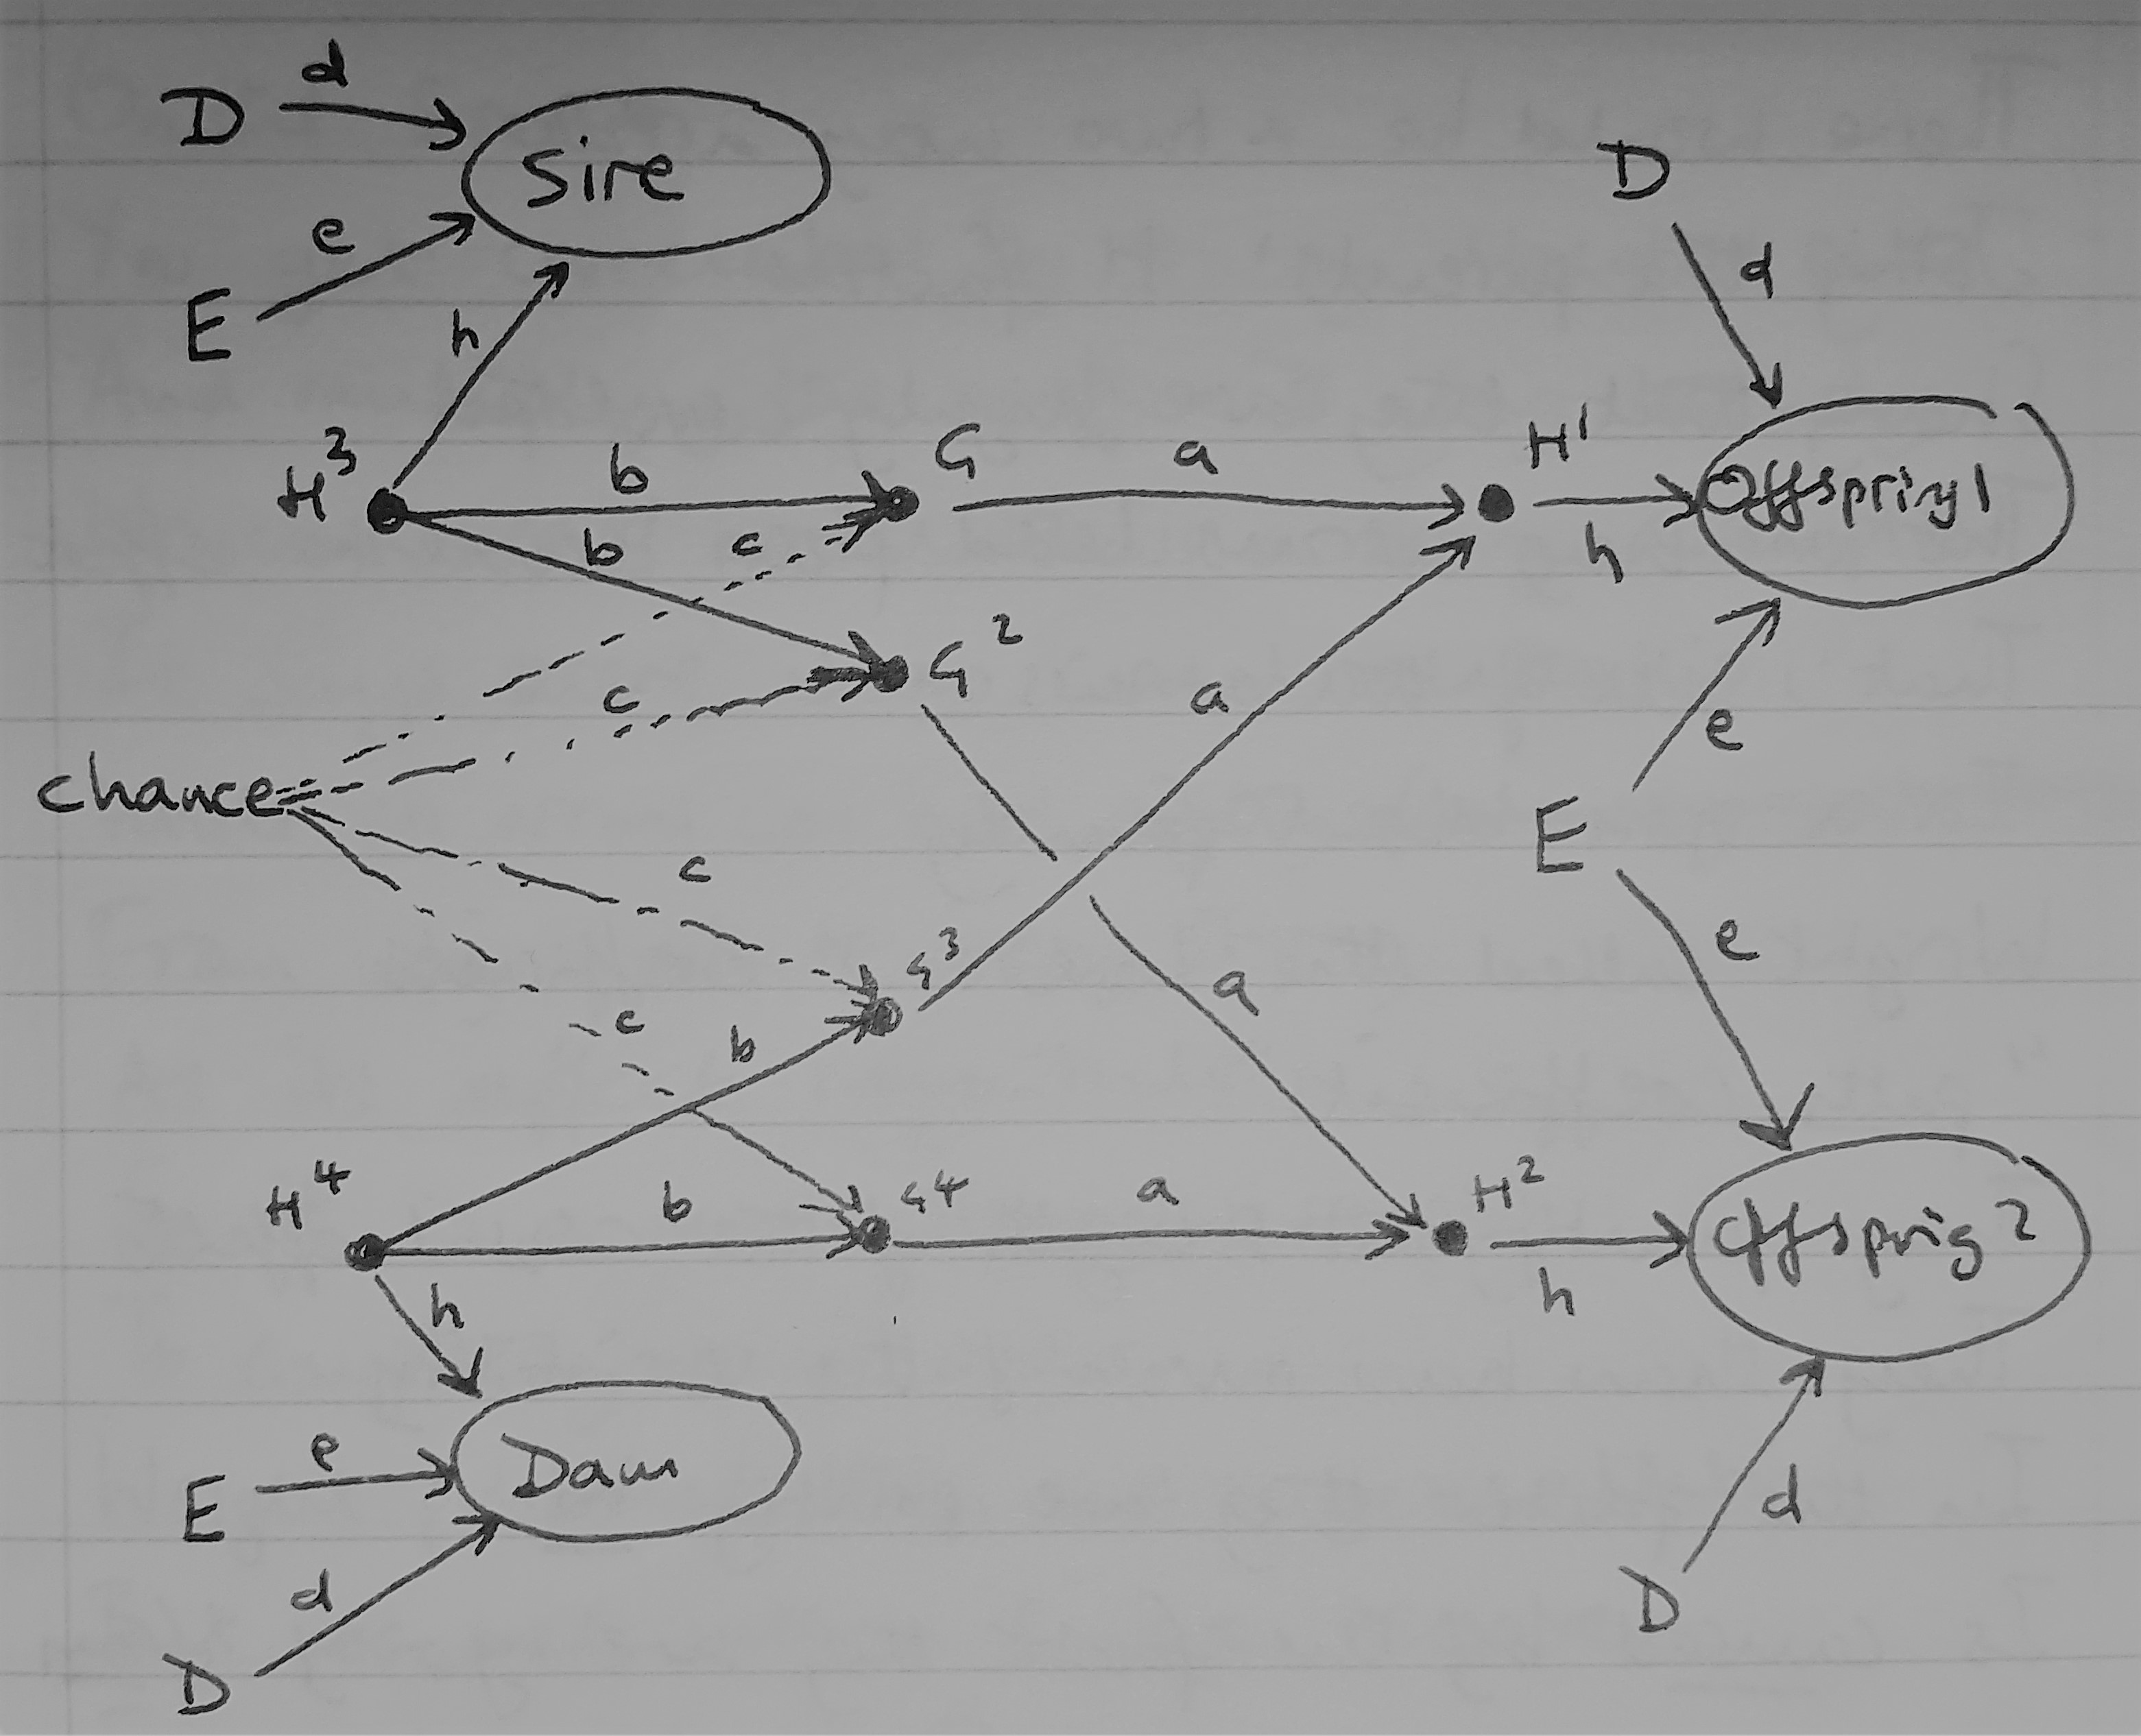 d
D
Sire
e
E
h
D
d
H³
b
G
a
H¹
Offspring1
b
c
h
G²
c
a
e
chance
E
c
e
G³
a
c
b
H⁴
b
G4
a
H²
Offsprig 2
h
h
e
Dam
E
d
d
D
D